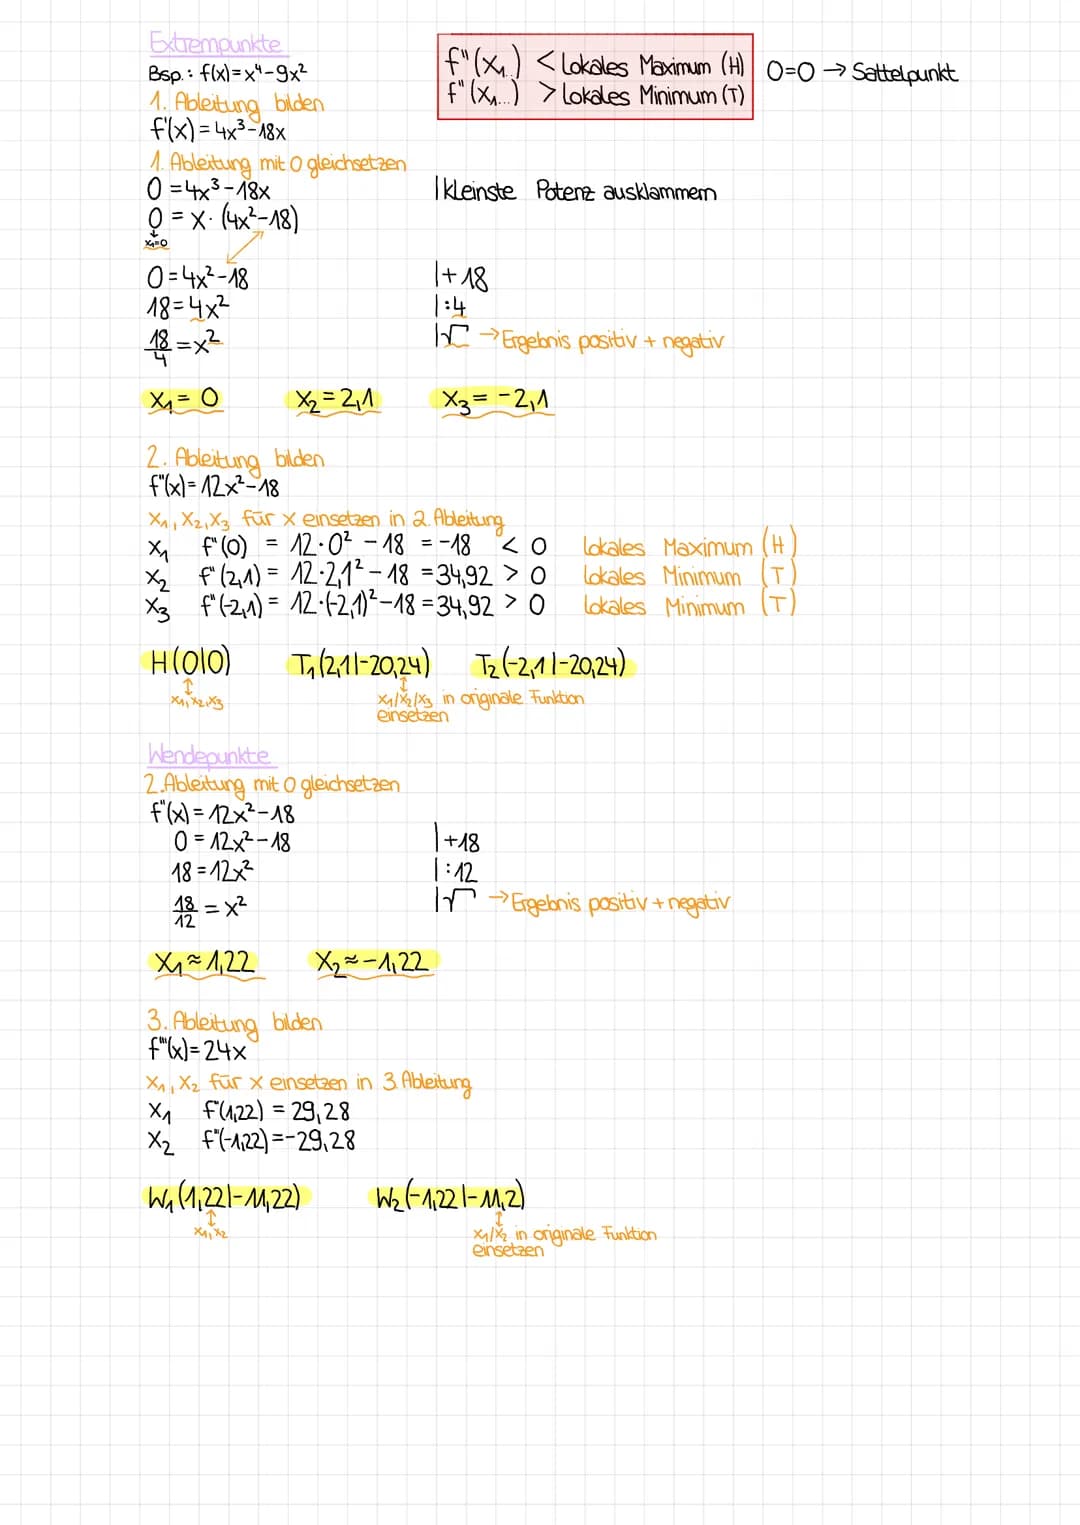 Extrempunkte
Bsp.: f(x)=x⁴-9x²
f"(x₁..) < Lokales Maximum (H)
f"(x₁...) > Lokales Minimum (T)
0=0 → Sattelpunkt
1. Ableitung bilden
f'(x)=4x³-18x
1. Ableitung mit 0 gleichsetzen
0=4x³-18x |kleinste Potenz ausklammern
0 = x· (4x²-18)
x₁=0
0=4x²-18 |+18
18=4x² |:4
18/4=x² |√ →Ergebnis positiv + negativ
x₁= 0 x₂=2,1 x₃=-2,1
2. Ableitung bilden
f"(x)=12x²-18
x₁,x₂,x₃ für x einsetzen in 2. Ableitung
x₁ f"(0) = 12·0² -18 = -18 < 0 lokales Maximum (H)
x₂ f"(2,1)= 12·2,1²-18 =34,92 > 0 lokales Minimum (T)
x₃ f"(-2,1)= 12·(-2,1)²-18=34,92 > 0 lokales Minimum (T)
H(0|0) T₁(2,1|-20,24) T₂(-2,1|-20,24)
↕ ↕
x₁,x₂,x₃ x₁/x₂/x₃ in originale Funktion
einsetzen
Wendepunkte
2.Ableitung mit 0 gleichsetzen
f"(x)=12x²-18
0=12x²-18 |+18
18=12x² |:12
18/12 = x² |√ →Ergebnis positiv + negativ
x₁≈1,22 x₂≈-1,22
3. Ableitung bilden
f'''(x)=24x
x₁,x₂ für x einsetzen in 3. Ableitung
x₁ f"(1,22) = 29,28
x₂ f"(-1,22)=-29,28
W₁(1,22|-11,22) W₂(-1,22|-11,2)
↕ ↕
x₁,x₂ x₁/x₂ in originale Funktion
einsetzen